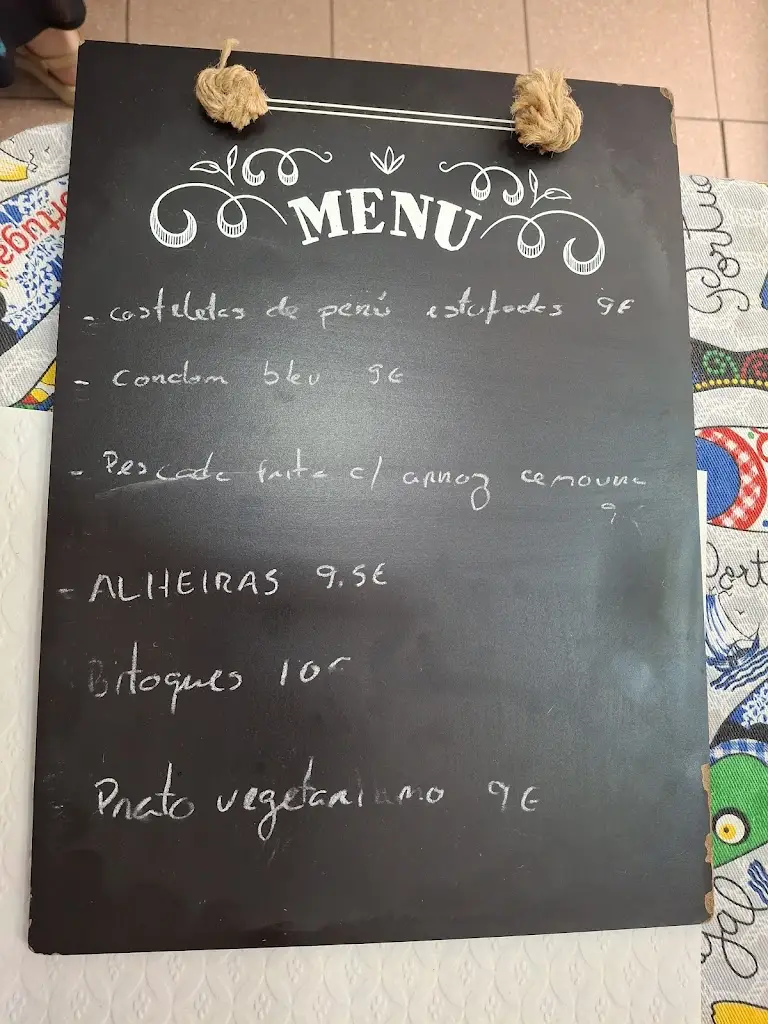 MENU
- costeletas de perú estufadas 9€
- Condom bleu 9€
- Pescada frita c/ arroz cenoura
9€
- ALHEIRAS 9.5€
Bitoques 10€
Prato vegetariano 9€
Portugal
Portu
Port
gal